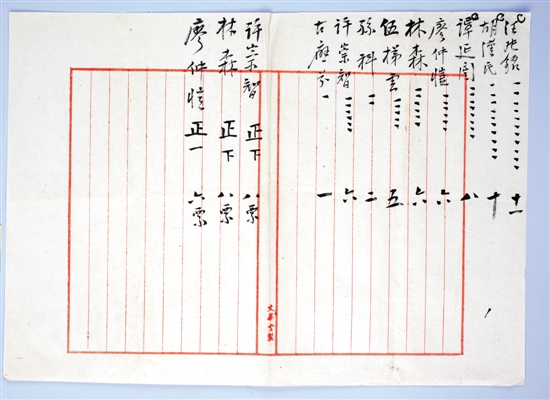 汪兆銘 十一
胡漢民 十
譚延闓 八
廖仲愷 六
林森 六
伍梯雲 五
孫科 二
許崇智 六
古應芬 一
許崇智 正下 八票
林森 正下 八票
廖仲愷 正一 六票